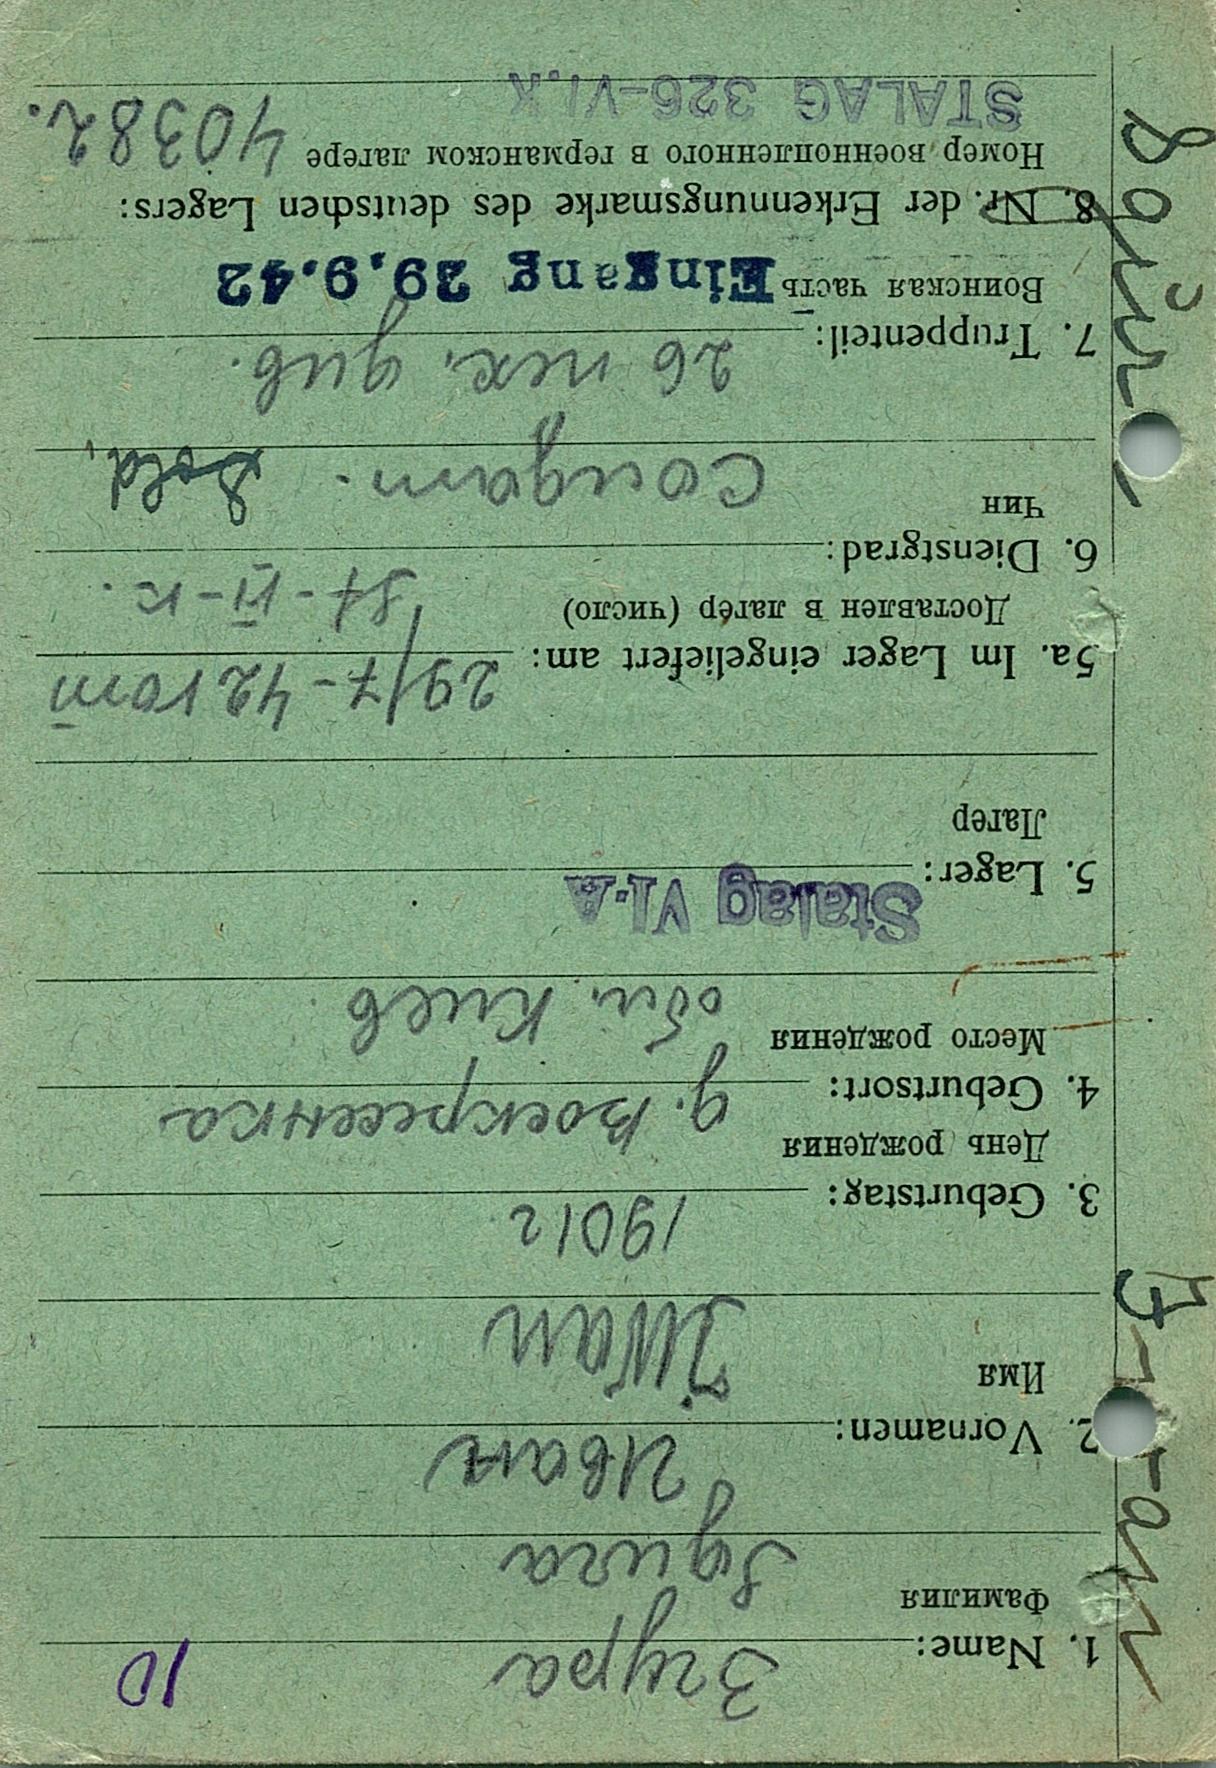 10
1. Name: Згура
Фамилия
Згура
2. Vornamen: Иван
Имя
Iwan
3. Geburtstag: 1901г
День рождения
4. Geburtsort: д. Воскресенка
Место рождения
обл. Киев.
5. Lager: Stalag VI-A
Лагер
5a. Im Lager eingeliefert am: 29/7-42 года
Доставлен в лагер (число)
6. Dienstgrad:
Чин
Солдат. Sold.
7. Truppenteil: 26 пех. див.
Воинская часть Eingang 29.9.42
8. Nr. der Erkennungsmarke des deutschen Lagers:
Номер военнопленного в германском лагере 40382.
STALAG 326-VI.K